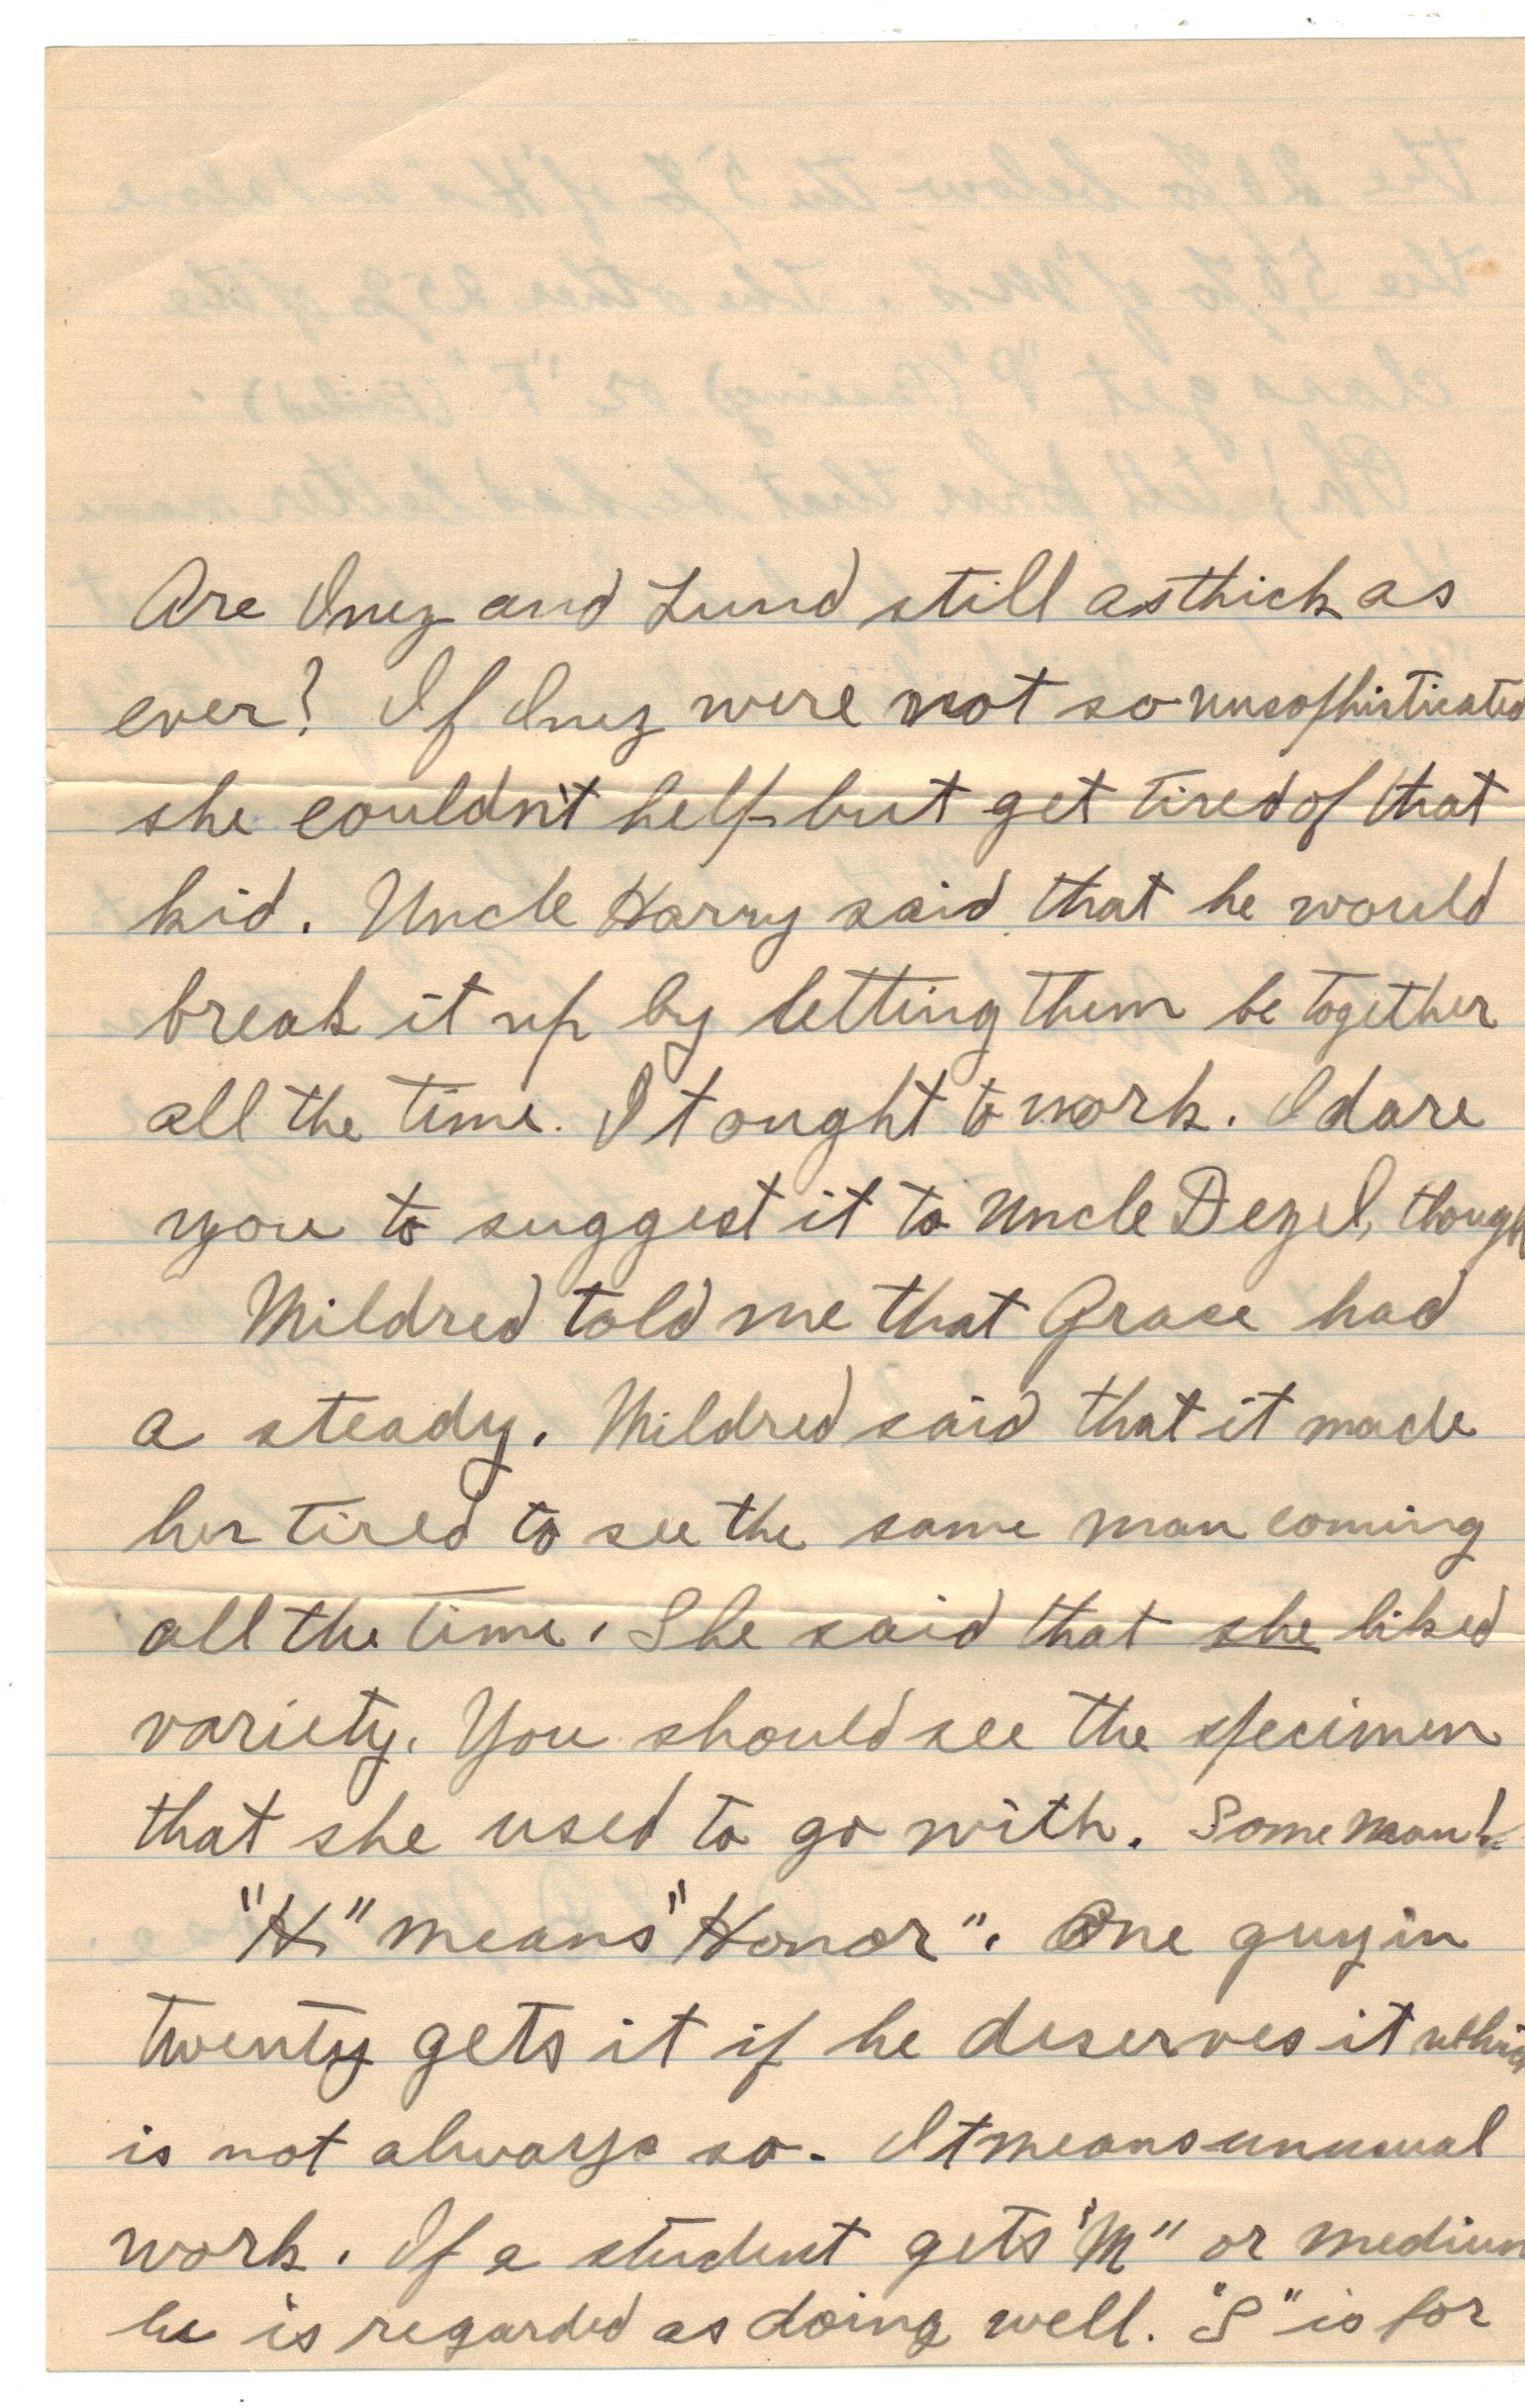 Are Inez and Lund still as thick as
ever? If Inez were not so unsophisticated
she couldn't help but get tired of that
kid. Uncle Harry said that he would
break it up by letting them be together
all the time. It ought to work. I dare
you to suggest it to Uncle Dezel, though
Mildred told me that Grace had
a steady. Mildred said that it made
her tired to see the same man coming
all the time. She said that she liked
variety. You should see the specimen
that she used to go with. Some man!
"H" means "Honor". One guy in
twenty gets it if he deserves it which
is not always so. It means unusual
work. If a student gets "M" or medium
he is regarded as doing well. "S" is for